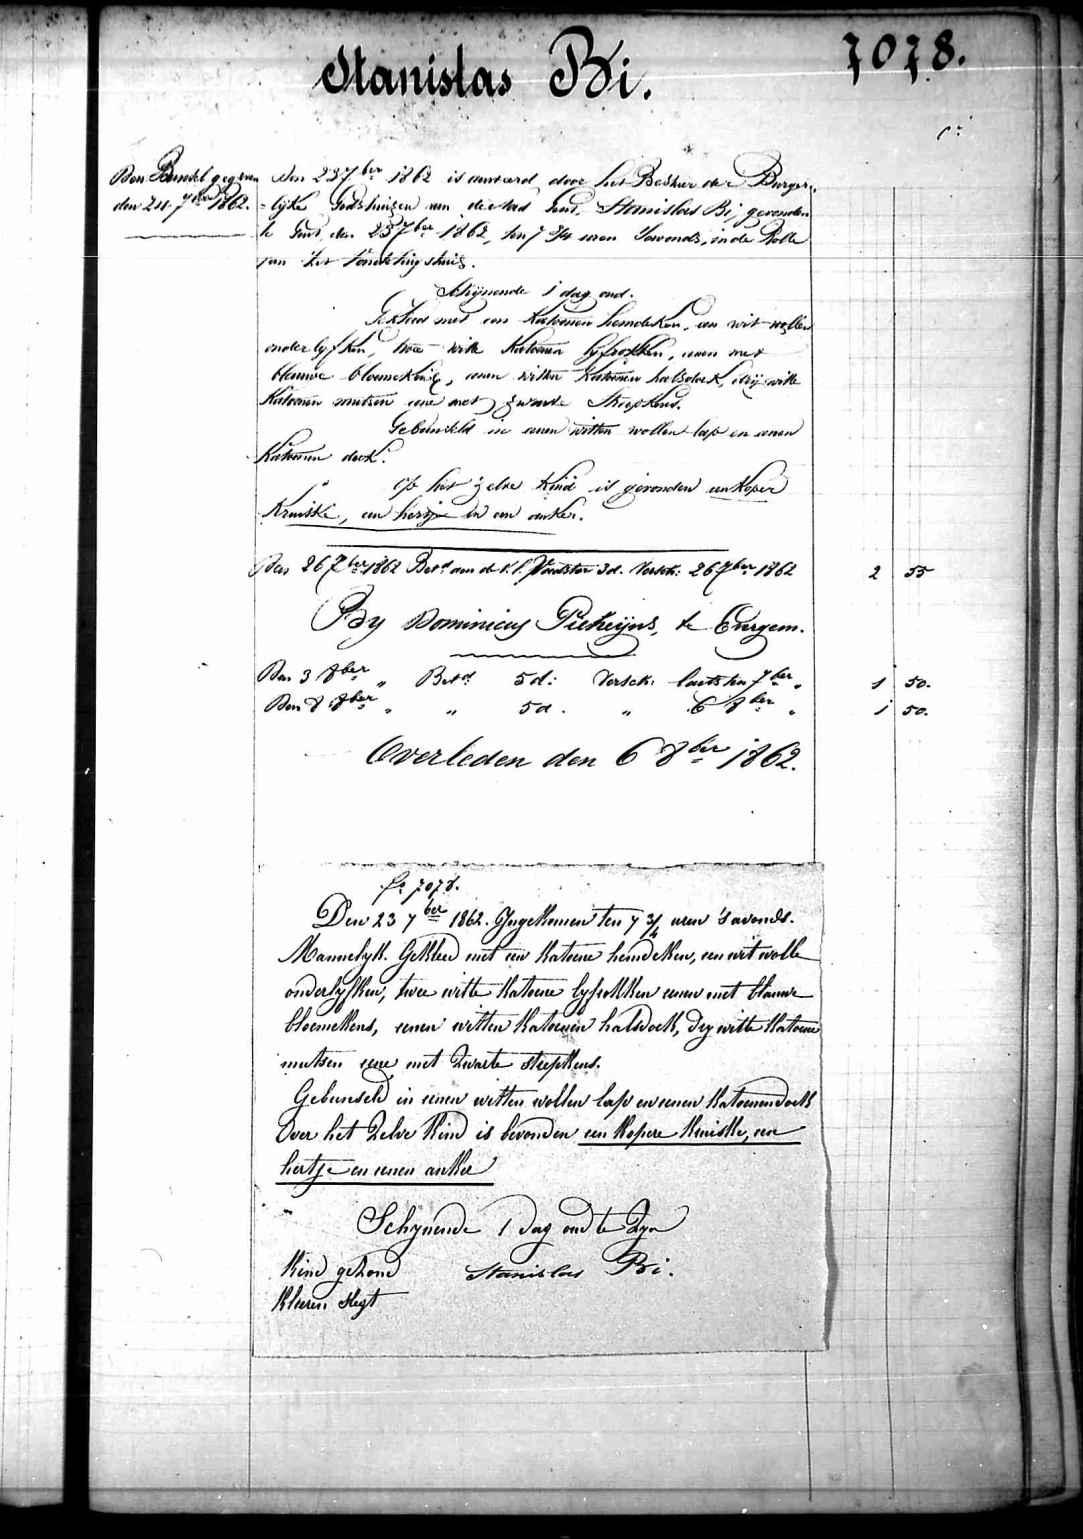 Stanislas Bi.
7078.
Den Bunsel gegeven
den 24 7ber 1862.
Den 23 7ber 1862 is aenveerd door het Bestuer der Burger-
-lijke Godshuizen van de stad Gend, Stanislas Bi, gevonden
te Gend, den 23 7ber 1862, ten 7 3/4 uren 's avonds, in de Rolle
van het Vondelingshuis.
Schijnende 1 dag oud.
Gekleed met een katoenen hemdeken, een wit wollen
onderlyfken, twee witte katoenen lyfrokken, eenen met
blauwe bloemekens, eenen witten katoenen halsdoek, drij witte
katoenen mutsen eene met zwarte streepkens.
Gebunseld in eenen witten wollen lap en eenen
katoenen doek.
Op het zelve kind is gevonden een koper
kruiske, een hertje en een anker.
Den 26 7ber 1862 Betd aen de Voedster 3d. Versch: 26 7ber 1862 2 55
By Dominicus Piekeijns, te Evergem.
Den 3 8ber " Betd 5d: Versch: laetsten 7ber " 1 50.
Den 8 8ber " " 5d. " 6 8ber " 1 50.
Overleden den 6 8ber 1862.
fo 7078.
Den 23 7ber 1862. Ingekomen ten 7 3/4 uren 's avonds.
Mannelyk. Gekleed met een katoene hemdeken, een wit wolle
onderlyfken, twee witte katoene lyfrokken eenen met blauwe
bloemekens, eenen witten katoenen halsdoek, dry witte katoene
mutsen eene met zwarte streepkens.
Gebunseld in eenen witten wollen lap en eenen katoenen doek
Over het zelve kind is bevonden een kopere kruiske, een
hertje en eenen anker
Schynende 1 dag oud te zyn
Kind gezond Stanislas Bi.
Kleeren slegt